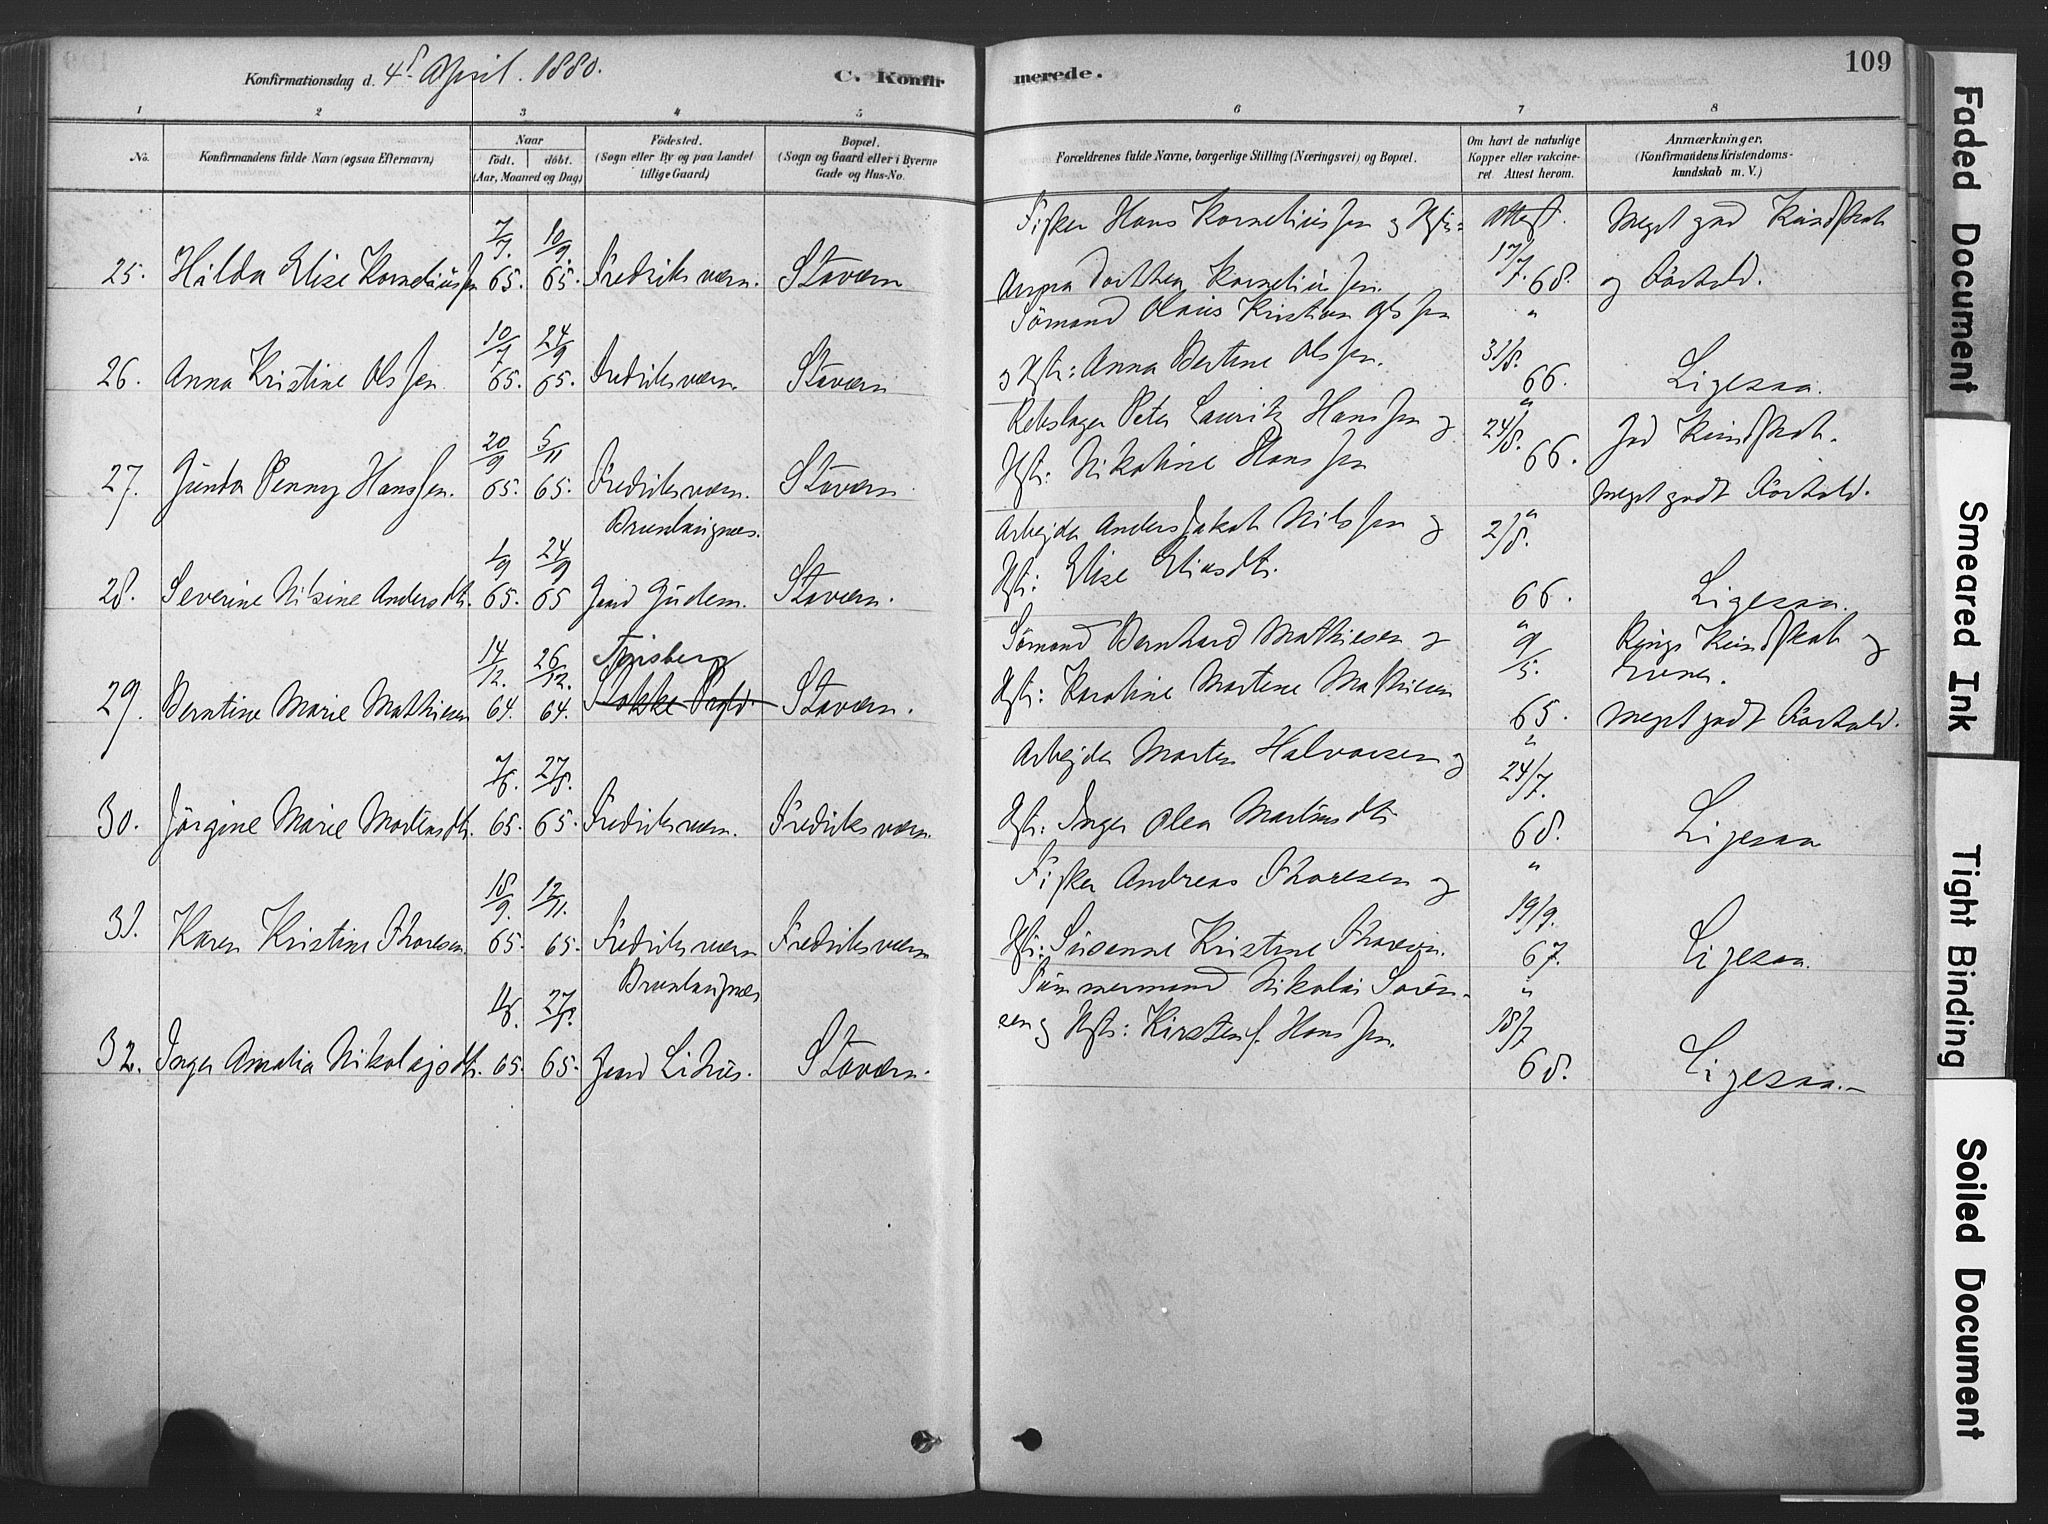 109
Konfirmationsdag d. 4de April. 1880.
C. Konfirmerede.
1 2 3 4 5 6 7 8
No.
Konfirmandens fulde Navn (ogsaa Efternavn)
Naar
født. døbt.
(Aar, Maaned og Dag)
Fødested.
(Sogn eller By og paa Landet
tillige Gaard)
Bopæl.
(Sogn og Gaard eller i Byerne
Gade og Hus-No.
Forældrenes fulde Navne, borgerlige Stilling (Næringsvei) og Bopæl.
Om havt de naturlige
Kopper eller vakcine-
ret. Attest herom.
Anmærkninger.
(Konfirmandens Kristendoms-
kundskab m. V.)
25. Hilda Elise Korneliussen 7/7. 65. 10/9. 65. Fredriksværn. Staværn
Fisker Hans Korneliussen og Hstr:
Anna Dorthea Korneliussen.
Attest. 17/7. 68.
Meget god Kundskab
og Forhold.
26. Anna Kristine Olssen 10/7 65. 24/9 65. Fredriksværn. Staværn
Sømand Olaus Kristian Olssen
og Hstr: Anna Bertine Olssen.
" 31/8. 66.
Ligesaa.
27. Gunda Penny Hanssen. 20/9 65. 5/11 65. Fredriksværn. Staværn
Rebslager Peter Lauritz Hanssen og
Hstr: Nikoline Hanssen
" 24/8. 66.
God Kundskab.
Meget godt Forhold.
28. Severine Nilsine Andersdtr. 1/9 65. 24/9 65 Brunlaugnæs. Gaard Gudem. Staværn.
Arbejder Anders Jakob Nilssen og
Hstr: Elise Eliasdtr.
" 2/8. 66.
Ligesaa.
29. Berntine Marie Mathiesen 14/12. 64. 26/12. 64. Tønsberg
Stokke Prgld. Staværn.
Sømand Bernhard Mathiesen og
Hstr: Karoline Martene Mathiesen
" 9/5. 65.
Ringe Kundskab og
Evner.
Meget godt Forhold.
30. Jørgine Marie Mortensdtr. 7/6. 65. 27/8. 65. Fredriksværn. Fredriksværn.
Arbejder Morten Halvorsen og
Hstr: Inger Olea Martinsdtr
" 24/7. 68.
Ligesaa
31. Karen Kristine Thoresen. 18/9. 65. 12/11. 65. Fredriksværn Fredriksværn
Fisker Andreas Thoresen og
Hstr: Susanne Kristine Thoresen.
" 19/9. 67.
Ligesaa.
32. Inger Amalia Nikolajsdtr. 65. 27/8. 65. Brunlaugnæs
Gaard Staværn.
Tømmermand Nikolai Søren-
sen og Hstr: Kirsten f. Hanssen.
" 18/7 68.
Ligesaa.—
Faded Document
Smeared Ink
Tight Binding
Soiled Document